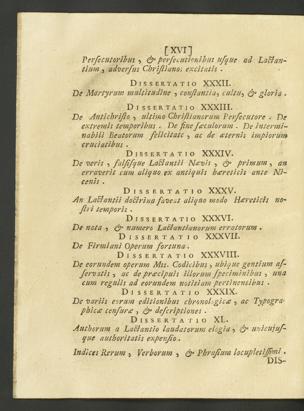 [XVI]
Persecutoribus, & persecutionibus usque ad Lactan-
tium, adversus Christianos excitatis.
DISSERTATIO XXXII.
De Martyrum multitudine, constantia, cultu, & gloria.
DISSERTATIO XXXIII.
De Antichristo, ultimo Christianorum Persecutore. De
extremis temporibus. De fine sæculorum. De intermi-
nabili Beatorum felicitate, ac de æternis impiorum
cruciatibus.
DISSERTATIO XXXIV.
De veris, falsisque Lactantii Nævis, & primum, an
erraverit cum aliquo ex antiquis hæreticis ante Ni-
cænis.
DISSERTATIO XXXV.
An Lactantii doctrina faveat aliquo modo Hæreticis no-
stri temporis.
DISSERTATIO XXXVI.
De nota, & numero Lactantianorum erratorum.
DISSERTATIO XXXVII.
De Firmiani Operum fortuna.
DISSERTATIO XXXVIII.
De eorundem operum Mss. Codicibus, ubique gentium as-
servatis, ac de præcipuis illorum speciminibus, una
cum regulis ad eorundem notitiam pertinentibus.
DISSERTATIO XXXIX.
De variis eorum editionibus chronologica, ac Typogra-
phica censura, & descriptiones.
DISSERTATIO XL.
Authorum a Lactantio laudatorum elogia, & uniuscujus-
que authoritatis expensio.
Indices Rerum, Verborum, & Phrasium locupletissimi.
DIS-